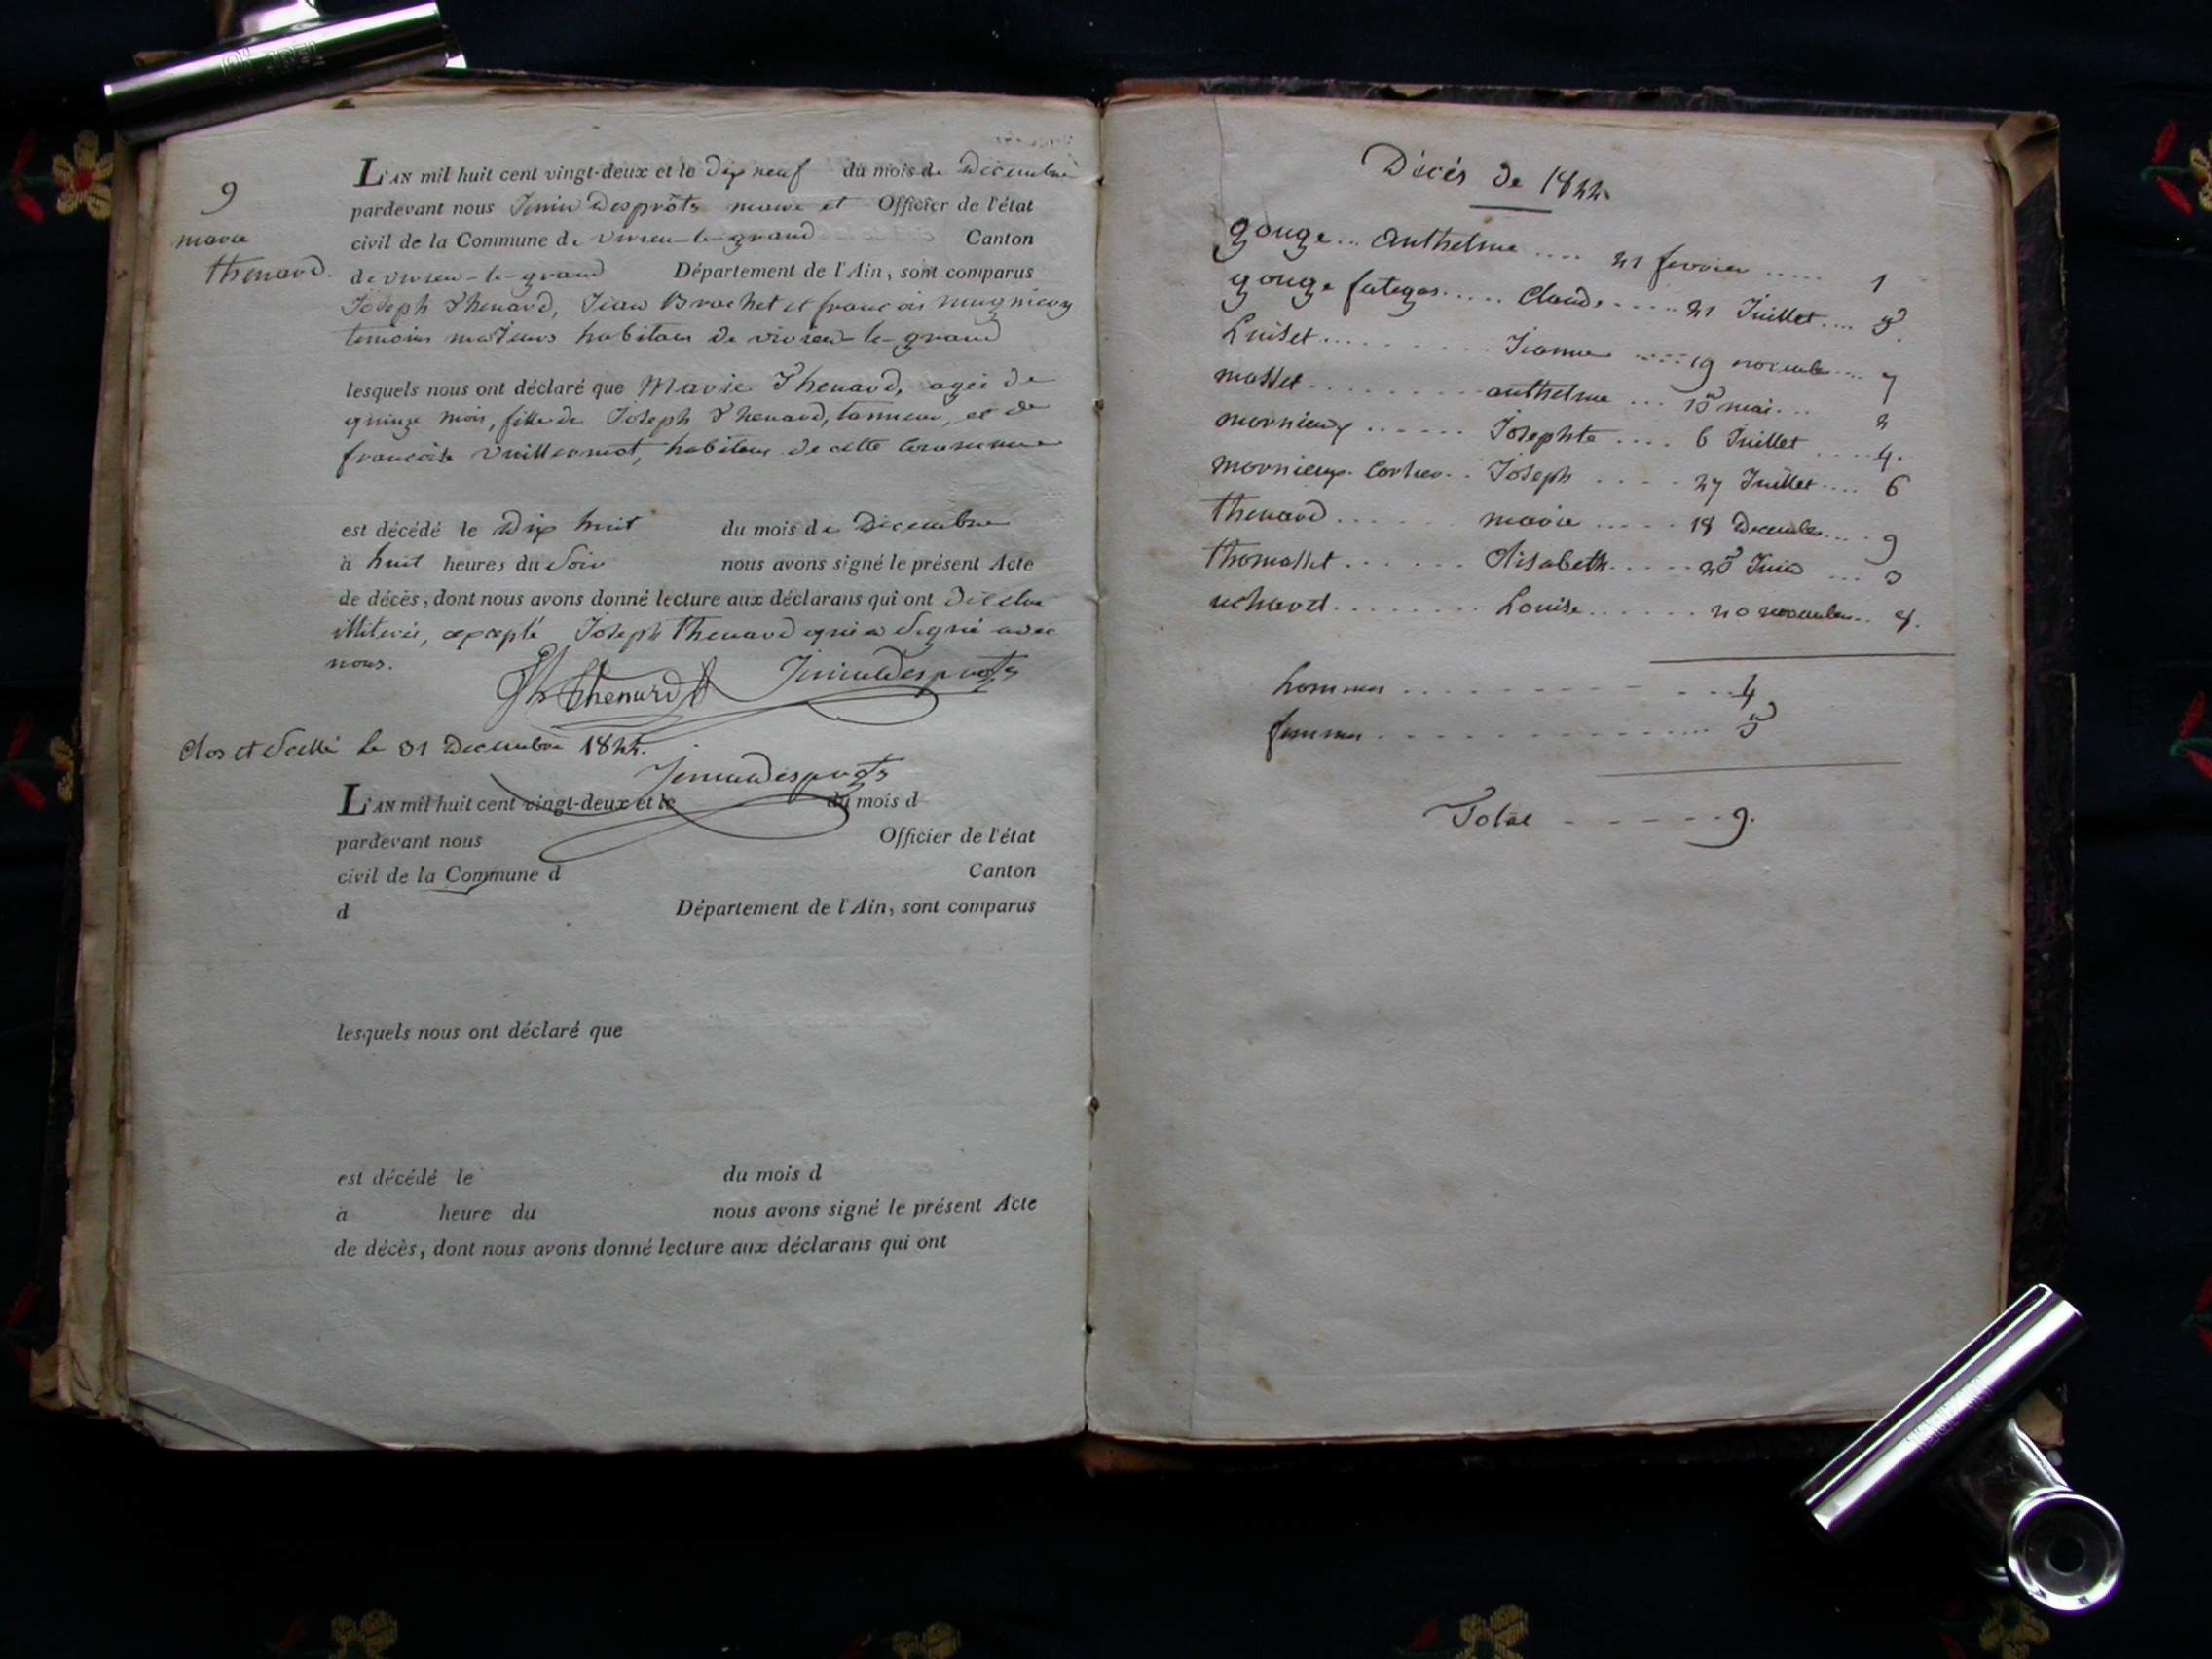 L'AN mil huit cent vingt-deux et le dix neuf du mois de Decembre
9
pardevant nous Jenin Desprôts maire et Officier de l'état
marie
civil de la Commune de virieu-le-grand Canton
thenard.
de virieu-le-grand Département de l'Ain, sont comparus
Joseph Thenard, Jean Brochet et francois mugnier
temoins majeurs habitans de virieu-le-grand
lesquels nous ont déclaré que Marie Thenard, agée de
quinze mois, fille de Joseph Thenard, tanneur, et de
francoise Vuillermot, habitans de cette Commune
est décédé le Dix huit du mois de Decembre
à huit heures du Soir nous avons signé le présent Acte
de décès, dont nous avons donné lecture aux déclarans qui ont
illiterés, excepté Joseph Thenard qui a Signé avec
nous.
Jh Thenard JeninDesprots
Clos et Scellé le 31 Decembre 1822.
JeninDesprots
L'AN mil huit cent vingt-deux et le du mois d
pardevant nous Officier de l'état
civil de la Commune d Canton
d Département de l'Ain, sont comparus
lesquels nous ont déclaré que
est décédé le du mois d
à heure du nous avons signé le présent Acte
de décès, dont nous avons donné lecture aux déclarans qui ont
Décés de 1822
gouge... Anthelme .... 21 fevrier ..... 1
gouge fategas..... Claude..... 21 Juillet.... 5.
Luiset......... Jeanne ..... 19 novembre.... 7
masset......... anthelme ... 15 mai... 2
mornieux ...... Josephte .... 6 Juillet .... 4.
mornieux.... Joseph .... 27 Juillet.... 6
Thenard...... marie ..... 18 Decembre.... 9
thomasset...... Elisabeth..... 25 Juin ... 3
uchard........ Louise...... 20 novembre.. 8.
hommes ........... 4
femmes ............. 5
Total ------ 9.